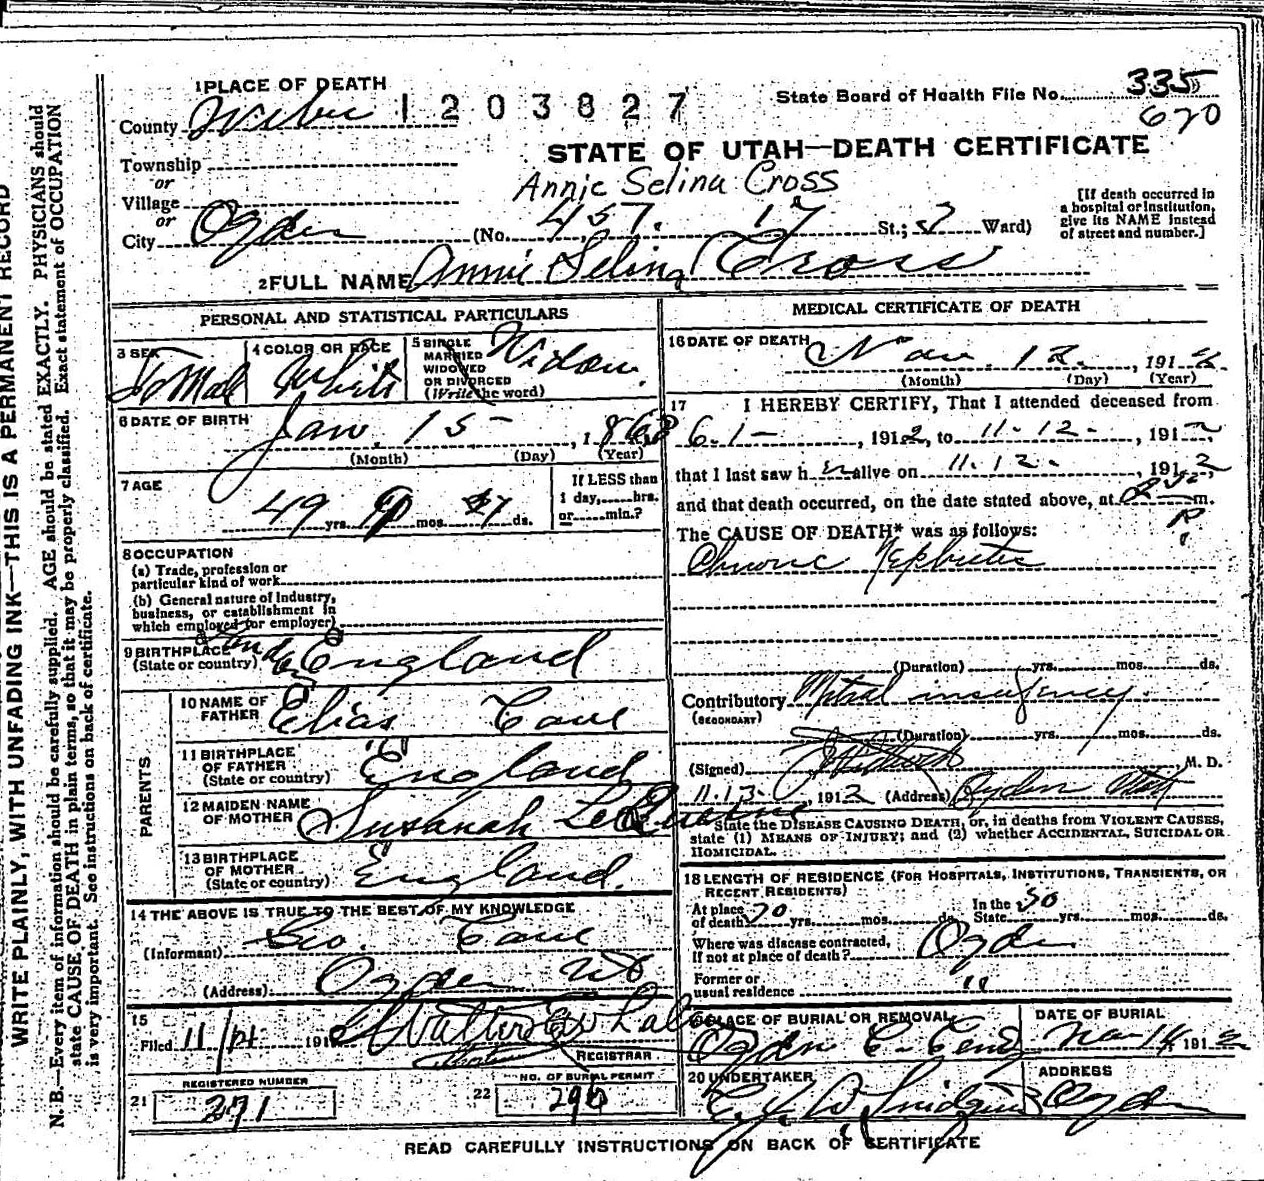 1 PLACE OF DEATH
County Weber 1203827
State Board of Health File No. 335
670
STATE OF UTAH—DEATH CERTIFICATE
Township
or
Annie Selina Cross
Village
or
City Ogden (No. 457. 17 St.; Ward)
[If death occurred in
a hospital or institution,
give its NAME instead
of street and number.]
2 FULL NAME Annie Selina Cross
PERSONAL AND STATISTICAL PARTICULARS
3 SEX
4 COLOR OR RACE White
5 SINGLE
MARRIED
WIDOWED
OR DIVORCED
(Write the word)
Widow
6 DATE OF BIRTH Jan. 15, 1863
(Month) (Day) (Year)
7 AGE
49 yrs. mos. ds.
If LESS than
1 day,......hrs.
or......min.?
8 OCCUPATION
(a) Trade, profession or
particular kind of work
(b) General nature of Industry,
business, or establishment in
which employed (or employer)
9 BIRTHPLACE
(State or country) England
PARENTS
10 NAME OF
FATHER Elias Cave
11 BIRTHPLACE
OF FATHER
(State or country) England
12 MAIDEN NAME
OF MOTHER Susanah
13 BIRTHPLACE
OF MOTHER
(State or country) England.
14 THE ABOVE IS TRUE TO THE BEST OF MY KNOWLEDGE
(Informant) Geo. Cave
(Address) Ogden Ut
15
Filed 11/14 191
REGISTRAR
REGISTERED NUMBER
21 271
NO. OF BURIAL PERMIT
22 296
MEDICAL CERTIFICATE OF DEATH
16 DATE OF DEATH Nov. 12, 1912
(Month) (Day) (Year)
17 I HEREBY CERTIFY, That I attended deceased from
6-1-, 1912, to 11-12-, 1912,
that I last saw her alive on 11.12-, 1912
and that death occurred, on the date stated above, at m.
The CAUSE OF DEATH* was as follows:
Chronic Nephritis
(Duration) yrs. mos. ds.
Contributory Mitral insufficiency
(SECONDARY)
(Duration) yrs. mos. ds.
(Signed) M. D.
11.13., 1912 (Address) Ogden Utah
State the DISEASE CAUSING DEATH, or, in deaths from VIOLENT CAUSES,
state (1) MEANS OF INJURY; and (2) whether ACCIDENTAL, SUICIDAL OR
HOMICIDAL.
18 LENGTH OF RESIDENCE (FOR HOSPITALS, INSTITUTIONS, TRANSIENTS, OR
RECENT RESIDENTS)
At place
of death yrs. mos. ds.
In the
State 30 yrs. mos. ds.
Where was disease contracted,
If not at place of death? Ogden
Former or
usual residence "
19 PLACE OF BURIAL OR REMOVAL
Ogden C. Cem
DATE OF BURIAL
Nov 14, 1912
20 UNDERTAKER
ADDRESS
Ogden
READ CAREFULLY INSTRUCTIONS ON BACK OF CERTIFICATE
WRITE PLAINLY, WITH UNFADING INK—THIS IS A PERMANENT RECORD
N. B.—Every item of information should be carefully supplied. AGE should be stated EXACTLY. PHYSICIANS should
state CAUSE OF DEATH in plain terms, so that it may be properly classified. Exact statement of OCCUPATION
is very important. See instructions on back of certificate.